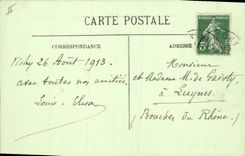 CARTE POSTALE
CORRESPONDANCE
ADRESSE
Vichy 26 Août 1913.
avec toutes nos amitiés
Louis
Monsieur
et Madame M. de Gavoty
à Luynes
(Bouches du Rhône)